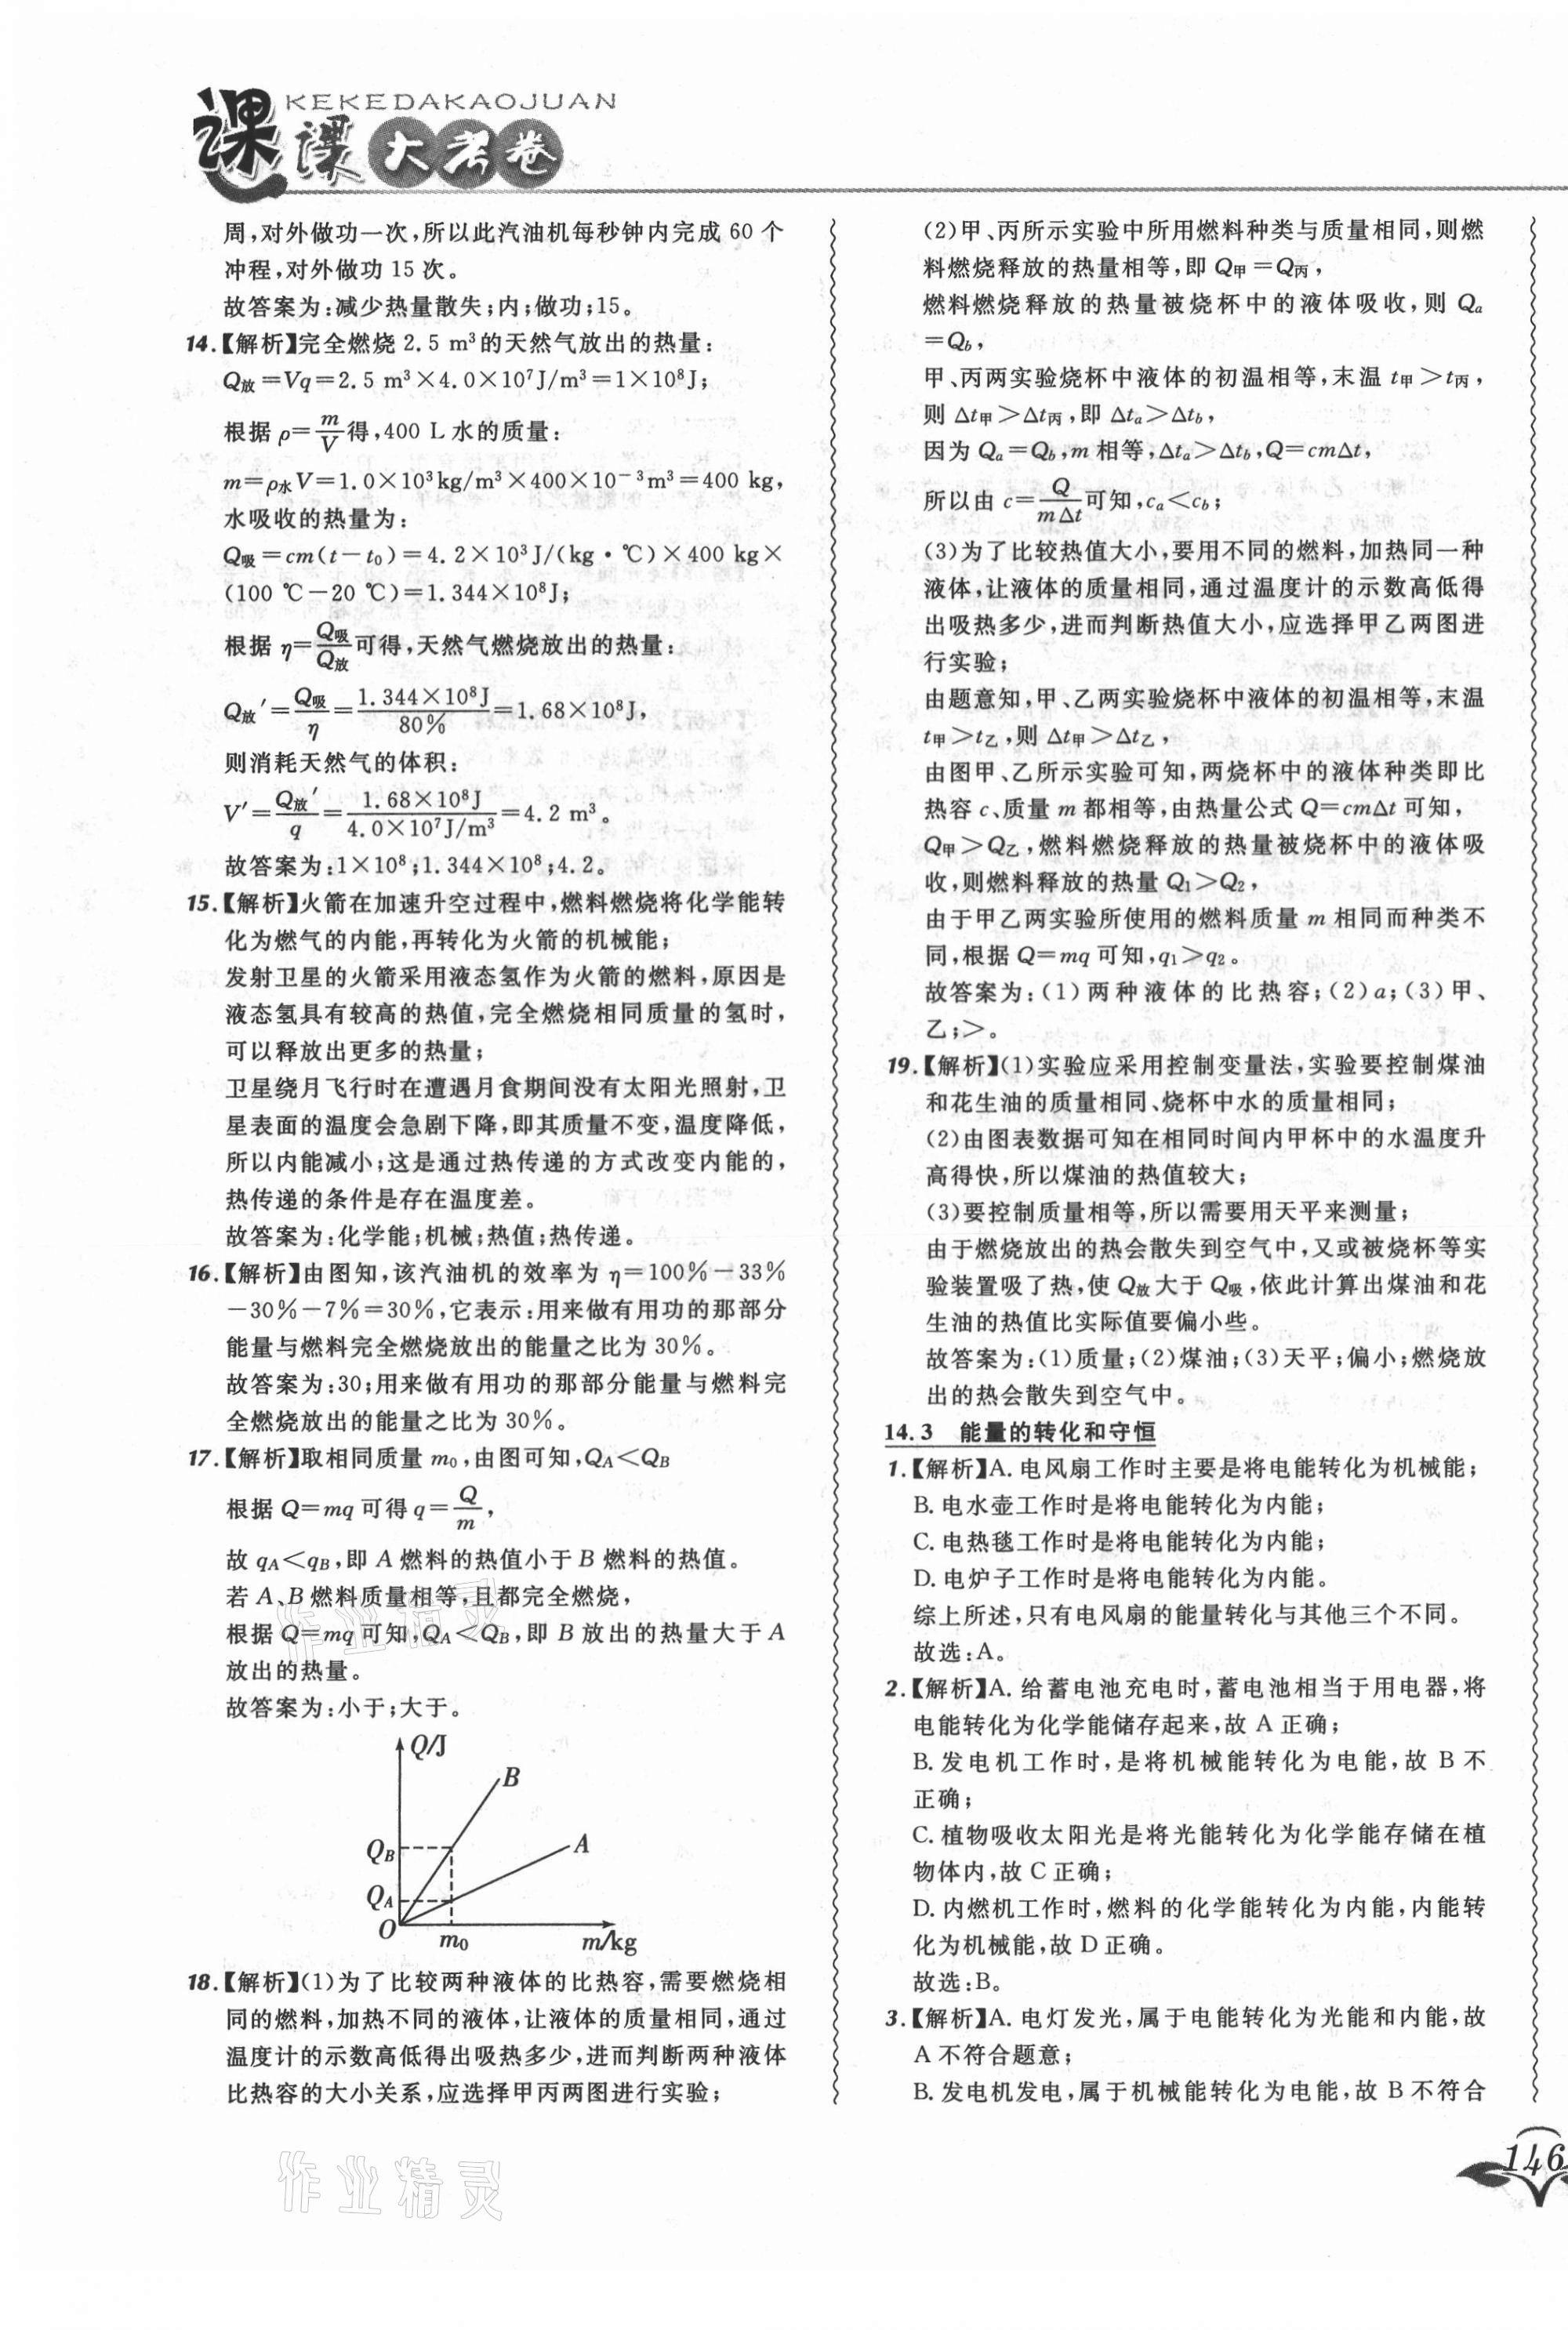 KEKEDAKAOJUAN
课课大考卷
周,对外做功一次,所以此汽油机每秒钟内完成 60 个
冲程,对外做功 15 次。
故答案为:减少热量散失;内;做功;15。
14.【解析】完全燃烧 2.5 m³的天然气放出的热量:
Q放=Vq=2.5 m³×4.0×10⁷J/m³=1×10⁸J;
根据 ρ=m/V得,400 L 水的质量:
m=ρ水V=1.0×10³kg/m³×400×10⁻³m³=400 kg,
水吸收的热量为:
Q吸=cm(t-t₀)=4.2×10³J/(kg·℃)×400 kg×
(100 ℃-20 ℃)=1.344×10⁸J;
根据 η=Q吸/Q放可得,天然气燃烧放出的热量:
Q放′=Q吸/η=1.344×10⁸J/80%=1.68×10⁸J,
则消耗天然气的体积:
V′=Q放′/q=1.68×10⁸J/4.0×10⁷J/m³=4.2 m³。
故答案为:1×10⁸;1.344×10⁸;4.2。
15.【解析】火箭在加速升空过程中,燃料燃烧将化学能转
化为燃气的内能,再转化为火箭的机械能;
发射卫星的火箭采用液态氢作为火箭的燃料,原因是
液态氢具有较高的热值,完全燃烧相同质量的氢时,
可以释放出更多的热量;
卫星绕月飞行时在遭遇月食期间没有太阳光照射,卫
星表面的温度会急剧下降,即其质量不变,温度降低,
所以内能减小;这是通过热传递的方式改变内能的,
热传递的条件是存在温度差。
故答案为:化学能;机械;热值;热传递。
16.【解析】由图知,该汽油机的效率为 η=100%-33%
-30%-7%=30%,它表示:用来做有用功的那部分
能量与燃料完全燃烧放出的能量之比为 30%。
故答案为:30;用来做有用功的那部分能量与燃料完
全燃烧放出的能量之比为 30%。
17.【解析】取相同质量 m₀,由图可知,QA<QB
根据 Q=mq 可得 q=Q/m,
故 qA<qB,即 A 燃料的热值小于 B 燃料的热值。
若 A、B 燃料质量相等,且都完全燃烧,
根据 Q=mq 可知,QA<QB,即 B 放出的热量大于 A
放出的热量。
故答案为:小于;大于。
Q/J
B
QB
A
QA
O
m₀
m/kg
18.【解析】(1)为了比较两种液体的比热容,需要燃烧相
同的燃料,加热不同的液体,让液体的质量相同,通过
温度计的示数高低得出吸热多少,进而判断两种液体
比热容的大小关系,应选择甲丙两图进行实验;
(2)甲、丙所示实验中所用燃料种类与质量相同,则燃
料燃烧释放的热量相等,即 Q甲=Q丙,
燃料燃烧释放的热量被烧杯中的液体吸收,则 Qa
=Qb,
甲、丙两实验烧杯中液体的初温相等,末温 t甲>t丙,
则 Δt甲>Δt丙,即 Δta>Δtb,
因为 Qa=Qb,m 相等,Δta>Δtb,Q=cmΔt,
所以由 c=Q/mΔt可知,ca<cb;
(3)为了比较热值大小,要用不同的燃料,加热同一种
液体,让液体的质量相同,通过温度计的示数高低得
出吸热多少,进而判断热值大小,应选择甲乙两图进
行实验;
由题意知,甲、乙两实验烧杯中液体的初温相等,末温
t甲>t乙,则 Δt甲>Δt乙,
由图甲、乙所示实验可知,两烧杯中的液体种类即比
热容 c、质量 m 都相等,由热量公式 Q=cmΔt 可知,
Q甲>Q乙,燃料燃烧释放的热量被烧杯中的液体吸
收,则燃料释放的热量 Q₁>Q₂,
由于甲乙两实验所使用的燃料质量 m 相同而种类不
同,根据 Q=mq 可知,q₁>q₂。
故答案为:(1)两种液体的比热容;(2)a;(3)甲、
乙;>。
19.【解析】(1)实验应采用控制变量法,实验要控制煤油
和花生油的质量相同、烧杯中水的质量相同;
(2)由图表数据可知在相同时间内甲杯中的水温度升
高得快,所以煤油的热值较大;
(3)要控制质量相等,所以需要用天平来测量;
由于燃烧放出的热会散失到空气中,又或被烧杯等实
验装置吸了热,使 Q放大于 Q吸,依此计算出煤油和花
生油的热值比实际值要偏小些。
故答案为:(1)质量;(2)煤油;(3)天平;偏小;燃烧放
出的热会散失到空气中。
14.3 能量的转化和守恒
1.【解析】A. 电风扇工作时主要是将电能转化为机械能;
B. 电水壶工作时是将电能转化为内能;
C. 电热毯工作时是将电能转化为内能;
D. 电炉子工作时是将电能转化为内能。
综上所述,只有电风扇的能量转化与其他三个不同。
故选:A。
2.【解析】A. 给蓄电池充电时,蓄电池相当于用电器,将
电能转化为化学能储存起来,故 A 正确;
B. 发电机工作时,是将机械能转化为电能,故 B 不
正确;
C. 植物吸收太阳光是将光能转化为化学能存储在植
物体内,故 C 正确;
D. 内燃机工作时,燃料的化学能转化为内能,内能转
化为机械能,故 D 正确。
故选:B。
3.【解析】A. 电灯发光,属于电能转化为光能和内能,故
A 不符合题意;
B. 发电机发电,属于机械能转化为电能,故 B 不符合
146
作业精灵
作业精灵